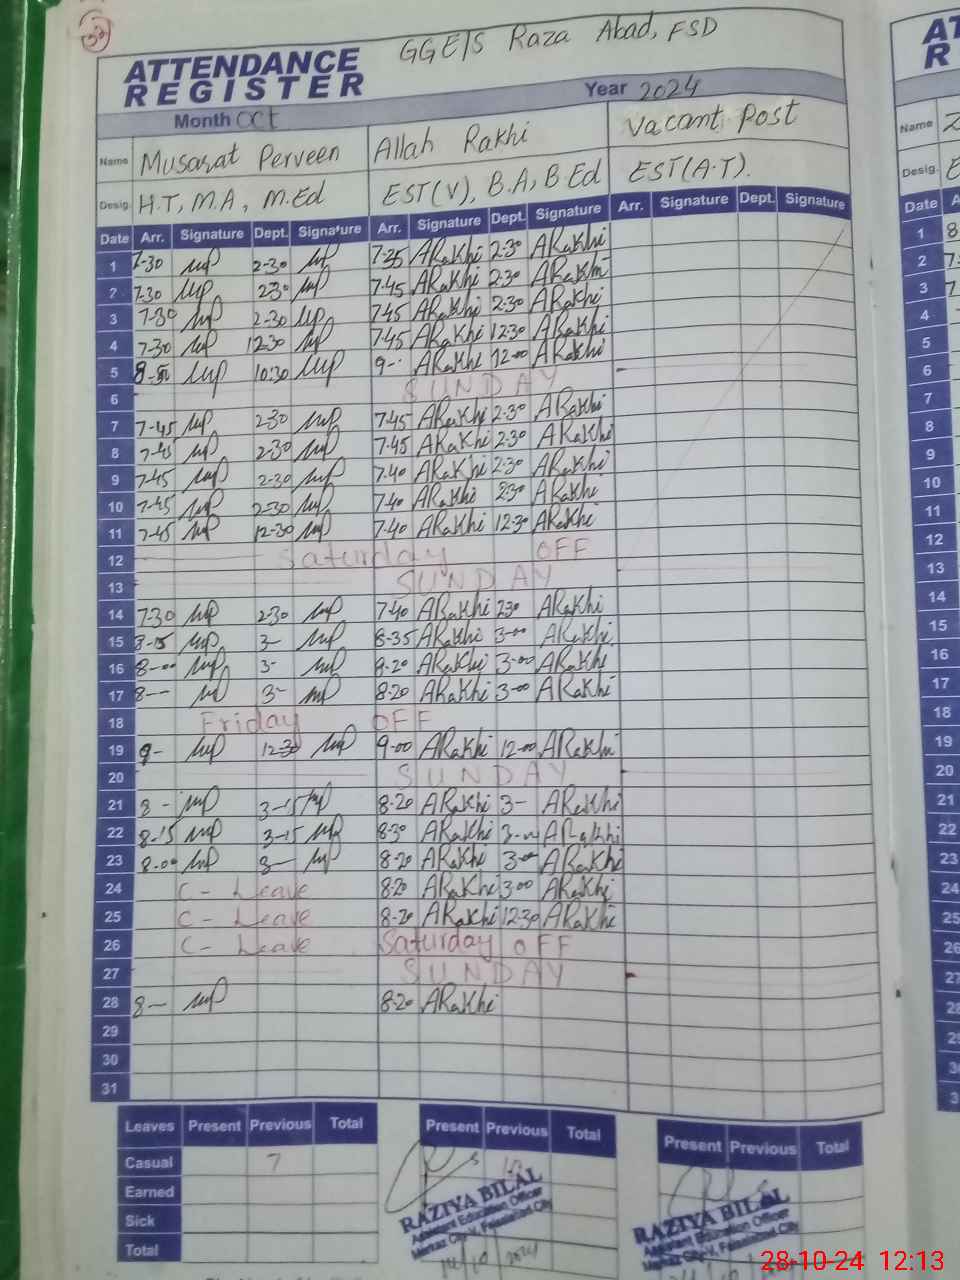 32
GGE/S Raza Abad, FSD
ATTENDANCE
REGISTER
Year 2024
Month Oct
Name Musarat Perveen Allah Rakhi Vacant Post
Desig. H.T, M.A, M.Ed EST(V), B.A, B.Ed EST(A.T).
Date Arr. Signature Dept. Signature Arr. Signature Dept. Signature Arr. Signature Dept. Signature
1 7-30 MP 2-30 MP 7-25 ARakhi 2-30 ARakhi
2 7-30 MP 230 MP 7-45 ARakhi 2-30 ARakhi
3 7-30 MP 2-30 MP 7-45 ARakhi 2-30 ARakhi
4 7-30 MP 12-30 MP 7-45 ARakhi 12-30 ARakhi
5 MP 10:30 MP 9-- ARakhi 12-00 ARakhi
6 SUNDAY
7 7-45 MP 2-30 MP 7-45 ARakhi 2-30 ARakhi
8 7-45 MP 2-30 MP 7-45 ARakhi 2-30 ARakhi
9 7-45 MP 2-30 MP 7-40 ARakhi 2-30 ARakhi
10 7-45 MP 2-30 MP 7-40 ARakhi 2-30 ARakhi
11 7-45 MP 12-30 MP 7-40 ARakhi 12-30 ARakhi
12 Saturday OFF
13 SUNDAY
14 7-30 MP 2-30 MP 7-40 ARakhi 230 ARakhi
15 8-15 MP 3- MP 8-35 ARakhi 3-00 ARakhi
16 8-00 MP 3- MP ARakhi 3-00 ARakhi
17 8-- MP 3- MP 8-20 ARakhi 3-00 ARakhi
18 Friday OFF
19 9- MP 12-30 MP 9-00 ARakhi 12-00 ARakhi
20 SUNDAY
21 8- MP 3-15 MP 8-20 ARakhi 3- ARakhi
22 8-15 MP 3-15 MP 8-30 ARakhi ARakhi
23 8-00 MP 3- MP 8-20 ARakhi 3-00 ARakhi
24 C-Leave 8-20 ARakhi 3-00 ARakhi
25 C-Leave 8-20 ARakhi 12-30 ARakhi
26 C-Leave Saturday OFF
27 SUNDAY
28 8- MP 8-20 ARakhi
29
30
31
Leaves Present Previous Total Present Previous Total Present Previous Total
Casual 7
Earned
Sick
Total
RAZIYA BILAL
Assistant Education Officer
Markaz City-V, Faisalabad City
RAZIYA BILAL
Assistant Education Officer
Markaz City-V, Faisalabad City
Name
Desig.
Date
1 8
2 7
3 7
4
5
6
7
8
9
10
11
12
13
14
15
16
17
18
19
20
21
22
23
24
25
26
27
28
28-10-24 12:13